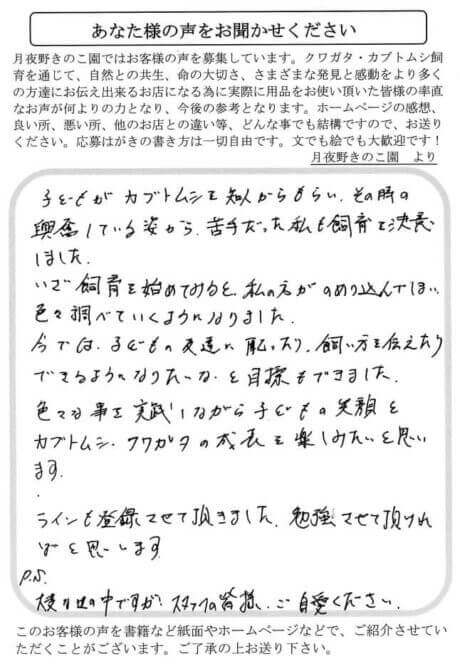 あなた様の声をお聞かせください
月夜野きのこ園ではお客様の声を募集しています。クワガタ・カブトムシ飼
育を通じて、自然との共生、命の大切さ、さまざまな発見と感動をより多く
の方達にお伝え出来るお店になる為に実際に用品をお使い頂いた皆様の率直
なお声が何よりの力となり、今後の参考となります。ホームページの感想、
良い所、悪い所、他のお店との違い等、どんな事でも結構ですので、お送り
ください。応募はがきの書き方は一切自由です。文でも絵でも大歓迎です！
月夜野きのこ園 より
子どもがカブトムシを知人からもらい、その時の
興奮している姿から、苦手だった私も飼育を決意
しました.
いざ飼育を始めてみると、私の方がのめり込んでしまい
色々調べていくようになりました.
今では、子どもの友達に配ったり、飼い方を伝えたり
できるようになりたいな、と目標もできました.
色々な事を実践しながら子どもの笑顔と
カブトムシ・クワガタの成長を楽しみたいと思い
ます.
ラインも登録させて頂きました. 勉強させて頂けれ
ばと思います
P.S.
世の中ですが、スタッフの皆様、ご自愛ください.
このお客様の声を書籍など紙面やホームページなどで、ご紹介させてい
ただくことがございます。ご了承の上お送り下さい。